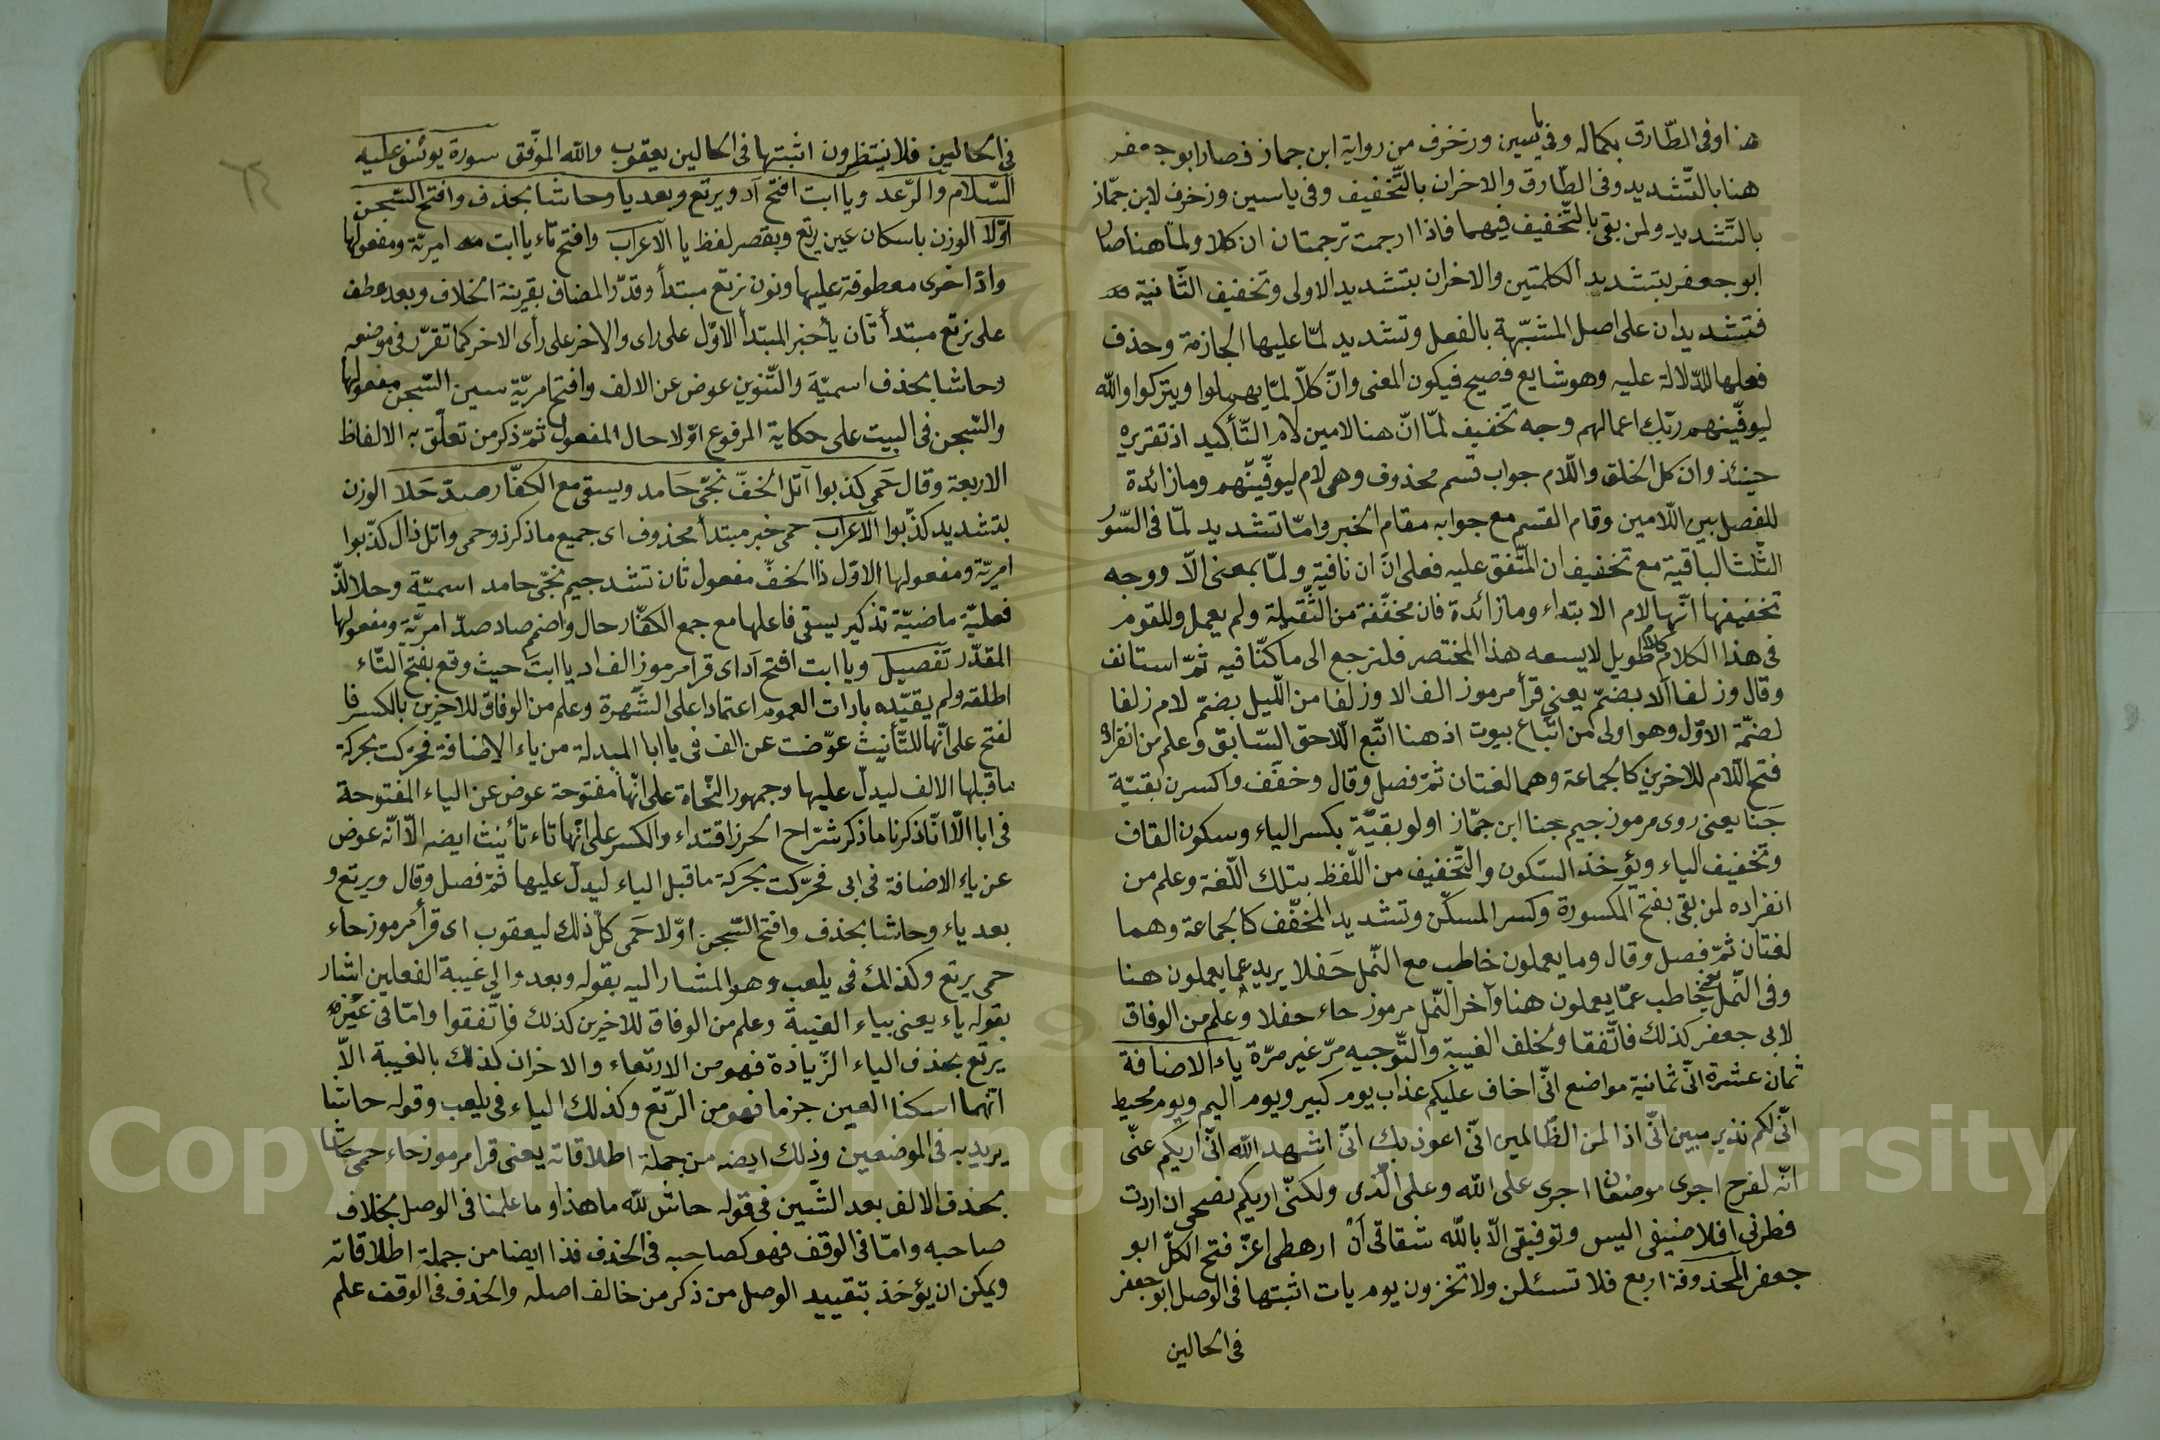 هنا وفى الطّارق بكماله وفى يسين وزخرف من رواية ابن جماز فصار ابو جعفر
هنا بالتّشديد وفى الطّارق والاخران بالتّخفيف وفى ياسين وزخرف لابن جمّاز
بالتّشديد ولمن بقى بالتّخفيف فيهما فاذا ارجمت ترجمتان ان كلا ولمّا هنا صار
ابو جعفر بتشديد الكلمتين والاخران بتشديد الاولى وتخفيف الثّانية
فتشديد ان على اصل المشبّهة بالفعل وتشديد لمّا عليها الجازمة وحذف
فعلها للدّلالة عليه وهو شايع فصيح فيكون المعنى وانّ كلاّ لمّا يهملوا ويتركوا والله
ليوفّينهم ربّك اعمالهم وجه تخفيف لمّا انّ هنا لامين لام التّأكيد اذ تقريره
حينئذ وان كل الخلق واللّام جواب قسم محذوف وهى لام ليوفّينّهم وما زائدة
للفصل بين اللّامين وقام القسم مع جوابه مقام الخبر وامّا تشديد لمّا فى السّور
الثّلث الباقية مع تخفيف ان المتّفق عليه فعلى انّ ان نافية ولمّا بمعنى الّا ووجه
تخفيفها انّها لام الابتداء وما زائدة فان مخفّفة من الثّقيلة ولم يعمل وللقوم
فى هذا الكلام كلام طويل لا يسعه هذا المختصر فلنرجع الى ما كنّا فيه ثمّ استانف
وقال وزلفا الا بضمّ يعنى قرأ مرموز الف الا وزلفا من اللّيل بضمّ لام زلفا
لضمّة الاوّل وهو اولى من اتّباع بيوت اذ هنا اتّبع اللّاحق السّابق وعلم من انفراده
فتح اللّام للاخرين كالجماعة وهما لغتان ثمّ فصل وقال وخفّف واكسرن بقيّة
جَنَا يعنى روى مرموز جيم جنا ابن جمّاز اولو بقيّة بكسر الباء وسكون القاف
وتخفيف الياء ويؤخذ السّكون والتّخفيف من اللّفظ بتلك اللّغة وعلم من
انفراده لمن بقى بفتح المكسورة وكسر المسكّن وتشديد المخفّف كالجماعة وهما
لغتان ثمّ فصل وقال وما يعملون خاطب مع النّمل حَفلا يريد عما يعملون هنا
وفى النّمل يخاطب عمّا يعملون هنا وآخر النّمل مرموز حاء حفلا وعلم من الوفاق
لابى جعفر كذلك فاتّفقا وخلف الغيبة والتّوجيه مرّ غير مرّة ياء الاضافة
ثمان عشرة انّى ثمانية مواضع انّى اخاف عليكم عذاب يوم كبير ويوم اليم ويوم محيط
انّى لكم نذير مبين انّى اذا لمن الظّالمين انّى اعوذ بك انّى اشهد الله انّى اريكم عنّى
انّه لفرح اجرى موضعان اجرى على الله وعلى الّذى ولكنّى اريكم نصحى ان اردت
فطرنى افلا ضيفى اليس وتوفيقى الّا بالله شقاقى ان ارهطى اعزّ فتح الكلّ ابو
جعفر المحذوفة اربع فلا تسئلن ولا تخزون يوم يات اثبتها فى الوصل ابو جعفر
فى الحالين
فى الحالين فلا ينتظرون اثبتها فى الحالين يعقوب والله الموفّق سورة يوسف عليه
السّلام والرّعد ويا ابت افتح آد ويرتع وبعد يا وحاشا بحذف وافتح السّجن
اوّلا الوزن باسكان عين يرتع وبقصر لفظ يا الاعراب وافتح تاء يا ابت امريّة ومفعولها
واد اخرى معطوفة عليها ونون نرتع مبتدأ وقدّر المضاف بقرينة الخلاف وبعد عطف
على نرتع مبتدأ ثان يا خبر المبتدأ الاوّل على راى والاخر على رأى الاخر كما تقرّر فى موضعه
وحاشا بحذف اسميّة والتّنوين عوض عن الالف وافتح امريّة سين السّجن مفعولها
والسّجن فى البيت على حكاية المرفوع اوّلا حال المفعول ثمّ ذكر من تعلّق به الالفاظ
الاربعة وقال حَمى كذبوا آتل الخفّ نجّى حَامد ويسقى مع الكفّار صدّ حَلا الوزن
بتشديد كذّبوا الاعراب حمى خبر مبتدأ محذوف اى جميع ما ذكر ذو حمى واتل ذال كذّبوا
امريّة ومفعولها الاوّل ذا الخفّ مفعول ثان تشدّ جيم نجّى حامد اسميّة وحلا لذّ
فعليّة ماضيّة تذكير يسقى فاعلها مع جمع الكفّار حال واضم صاد صدّ امريّة ومفعولها
المقدّر تفصيل ويا ابت افتح آد اى قرا مرموز الف اد يا ابت حيث وقع بفتح التّاء
اطلقه ولم يقيّده بادات العموم اعتمادا على الشّهرة وعلم من الوفاق للاخرين بالكسر فا
لفتح على انّها للتّأنيث عوّضت عن الف فى يا ابا المبدلة من ياء الاضافة فحرّكت بحركة
ما قبلها الالف ليدلّ عليها وجمهور النّحاة على انّها مفتوحة عوض عن الياء المفتوحة
فى ابا الّا انّا ذكرنا ما ذكر شرّاح الحرز اقتداء والكسر على انّها تاء تأنيث ايضه الّا انّه عوض
عن ياء الاضافة فى ابى فحرّكت بحركة ما قبل الياء ليدلّ عليها ثمّ فصل وقال ويرتع و
بعد ياء وحاشا بحذف وافتح السّجن اوّلا حَمى كلّ ذلك ليعقوب اى قرأ مرموز حاء
حمى يرتع وكذلك فى يلعب وهو المشار اليه بقوله وبعد والى غيبة الفعلين اشار
بقوله ياء يعنى بياء الغيبة وعلم من الوفاق للاخرين كذلك فاتّفقوا وامّا فى عين
يرتع بحذف الياء الزّيادة فهو من الارتعاء والاخران كذلك بالغيبة الاّ
انّهما اسكنا العين جزما فهو من الرّتع وكذلك الياء فى يلعب وقوله حاشا
يريد به فى الموضعين وذلك ايضه من جملة اطلاقاته يعنى قرا مرموز حاء حمى حاشا
بحذف الالف بعد الشّين فى قوله حاش لله ما هذا وما علمنا فى الوصل بخلاف
صاحبه وامّا فى الوقف فهو كصاحبه فى الحذف فذا ايضا من جملة اطلاقاته
ويمكن ان يؤخذ بتقييد الوصل من ذكر من خالف اصله والحذف فى الوقف علم
Copyright © King Saud University